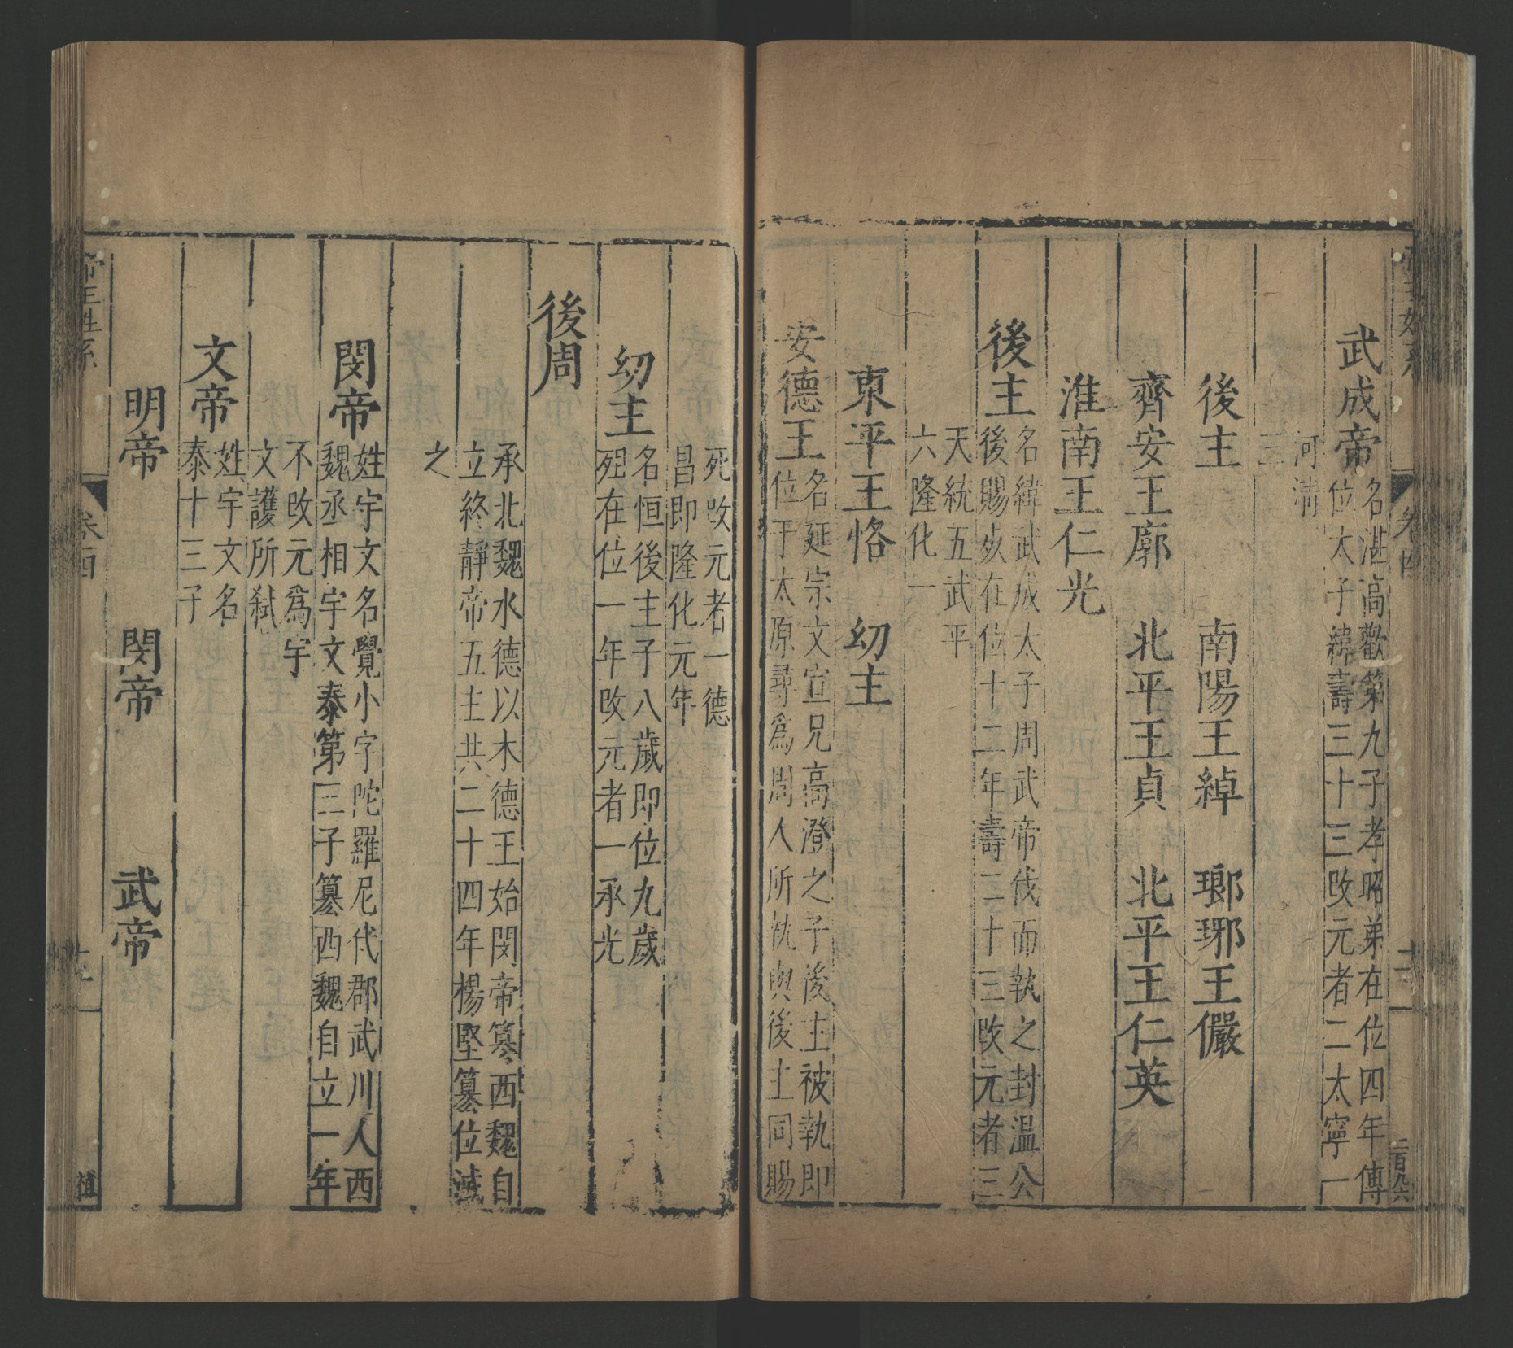 武成帝
名湛高歡第九子孝昭弟在位四年傳
位太子緯壽三十三改元者二太寧一
河淸
三
後主　南陽王綽　瑯琊王儼
齊安王廓　北平王貞　北平王仁英
淮南王仁光
後主
名緯武成太子周武帝伐而執之封溫公
後賜死在位十二年壽二十三改元者三
天統五武平
六隆化一
東平王恪　幼主
安德王
名延宗文宣兄高澄之子後主被執即
位于太原尋爲周人所執與後主同賜
死改元者一德
昌即隆化元年
幼主
名恒後主子八歲即位九歲
殂在位一年改元者一承光
後周
承北魏水德以木德王始閔帝簒西魏自
立終靜帝五主共二十四年楊堅簒位滅
之
閔帝
姓宇文名覺小字陀羅尼代郡武川人西
魏丞相宇文泰第三子簒西魏自立一年
不改元爲宇
文護所弑
文帝
姓宇文名
泰十三子
明帝　閔帝　武帝
帝王姓系
卷四